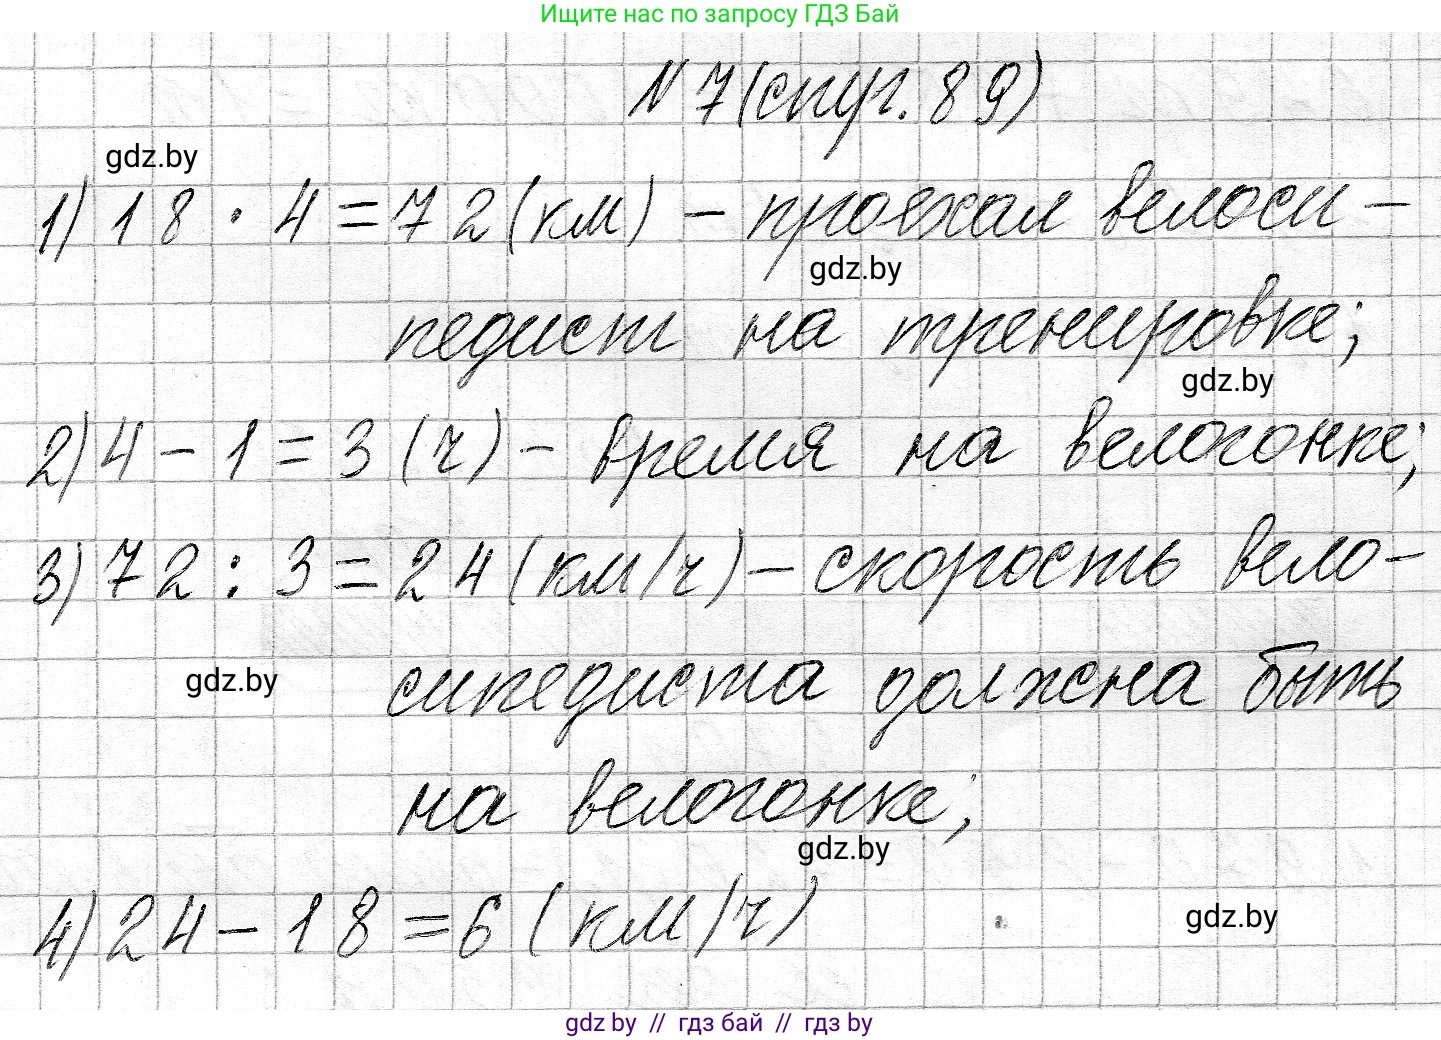 Ищите нас по запросу ГДЗ Бай
N 7 (стр. 89)
gdz.by
1) 18 · 4 = 72 (км) – проехал велоси –
gdz.by
педист на тренировке;
gdz.by
2) 4 – 1 = 3 (ч) – время на велогонке;
3) 72 : 3 = 24 (км/ч) – скорость вело –
gdz.by
сипедиста должна быть
на велогонке;
gdz.by
4) 24 – 18 = 6 (км/ч)
gdz.by
gdz by // гдз бай // гдз by